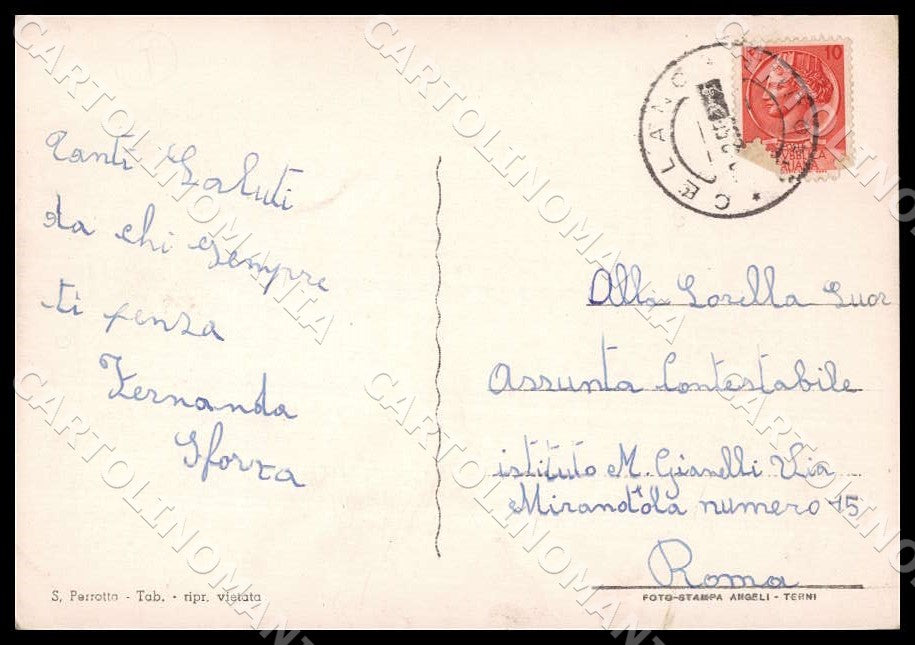 Tanti Saluti
da chi sempre
ti penza
Fernanda
Sforza
10
CELANO
Alla Sorella Suor
Assunta Contestabile
istituto M. Gianelli Via
Mirandola numero 15
Roma
S. Perrotta - Tab. - ripr. vietata
FOTO-STAMPA ANGELI - TERNI
CARTOLINOMANIA